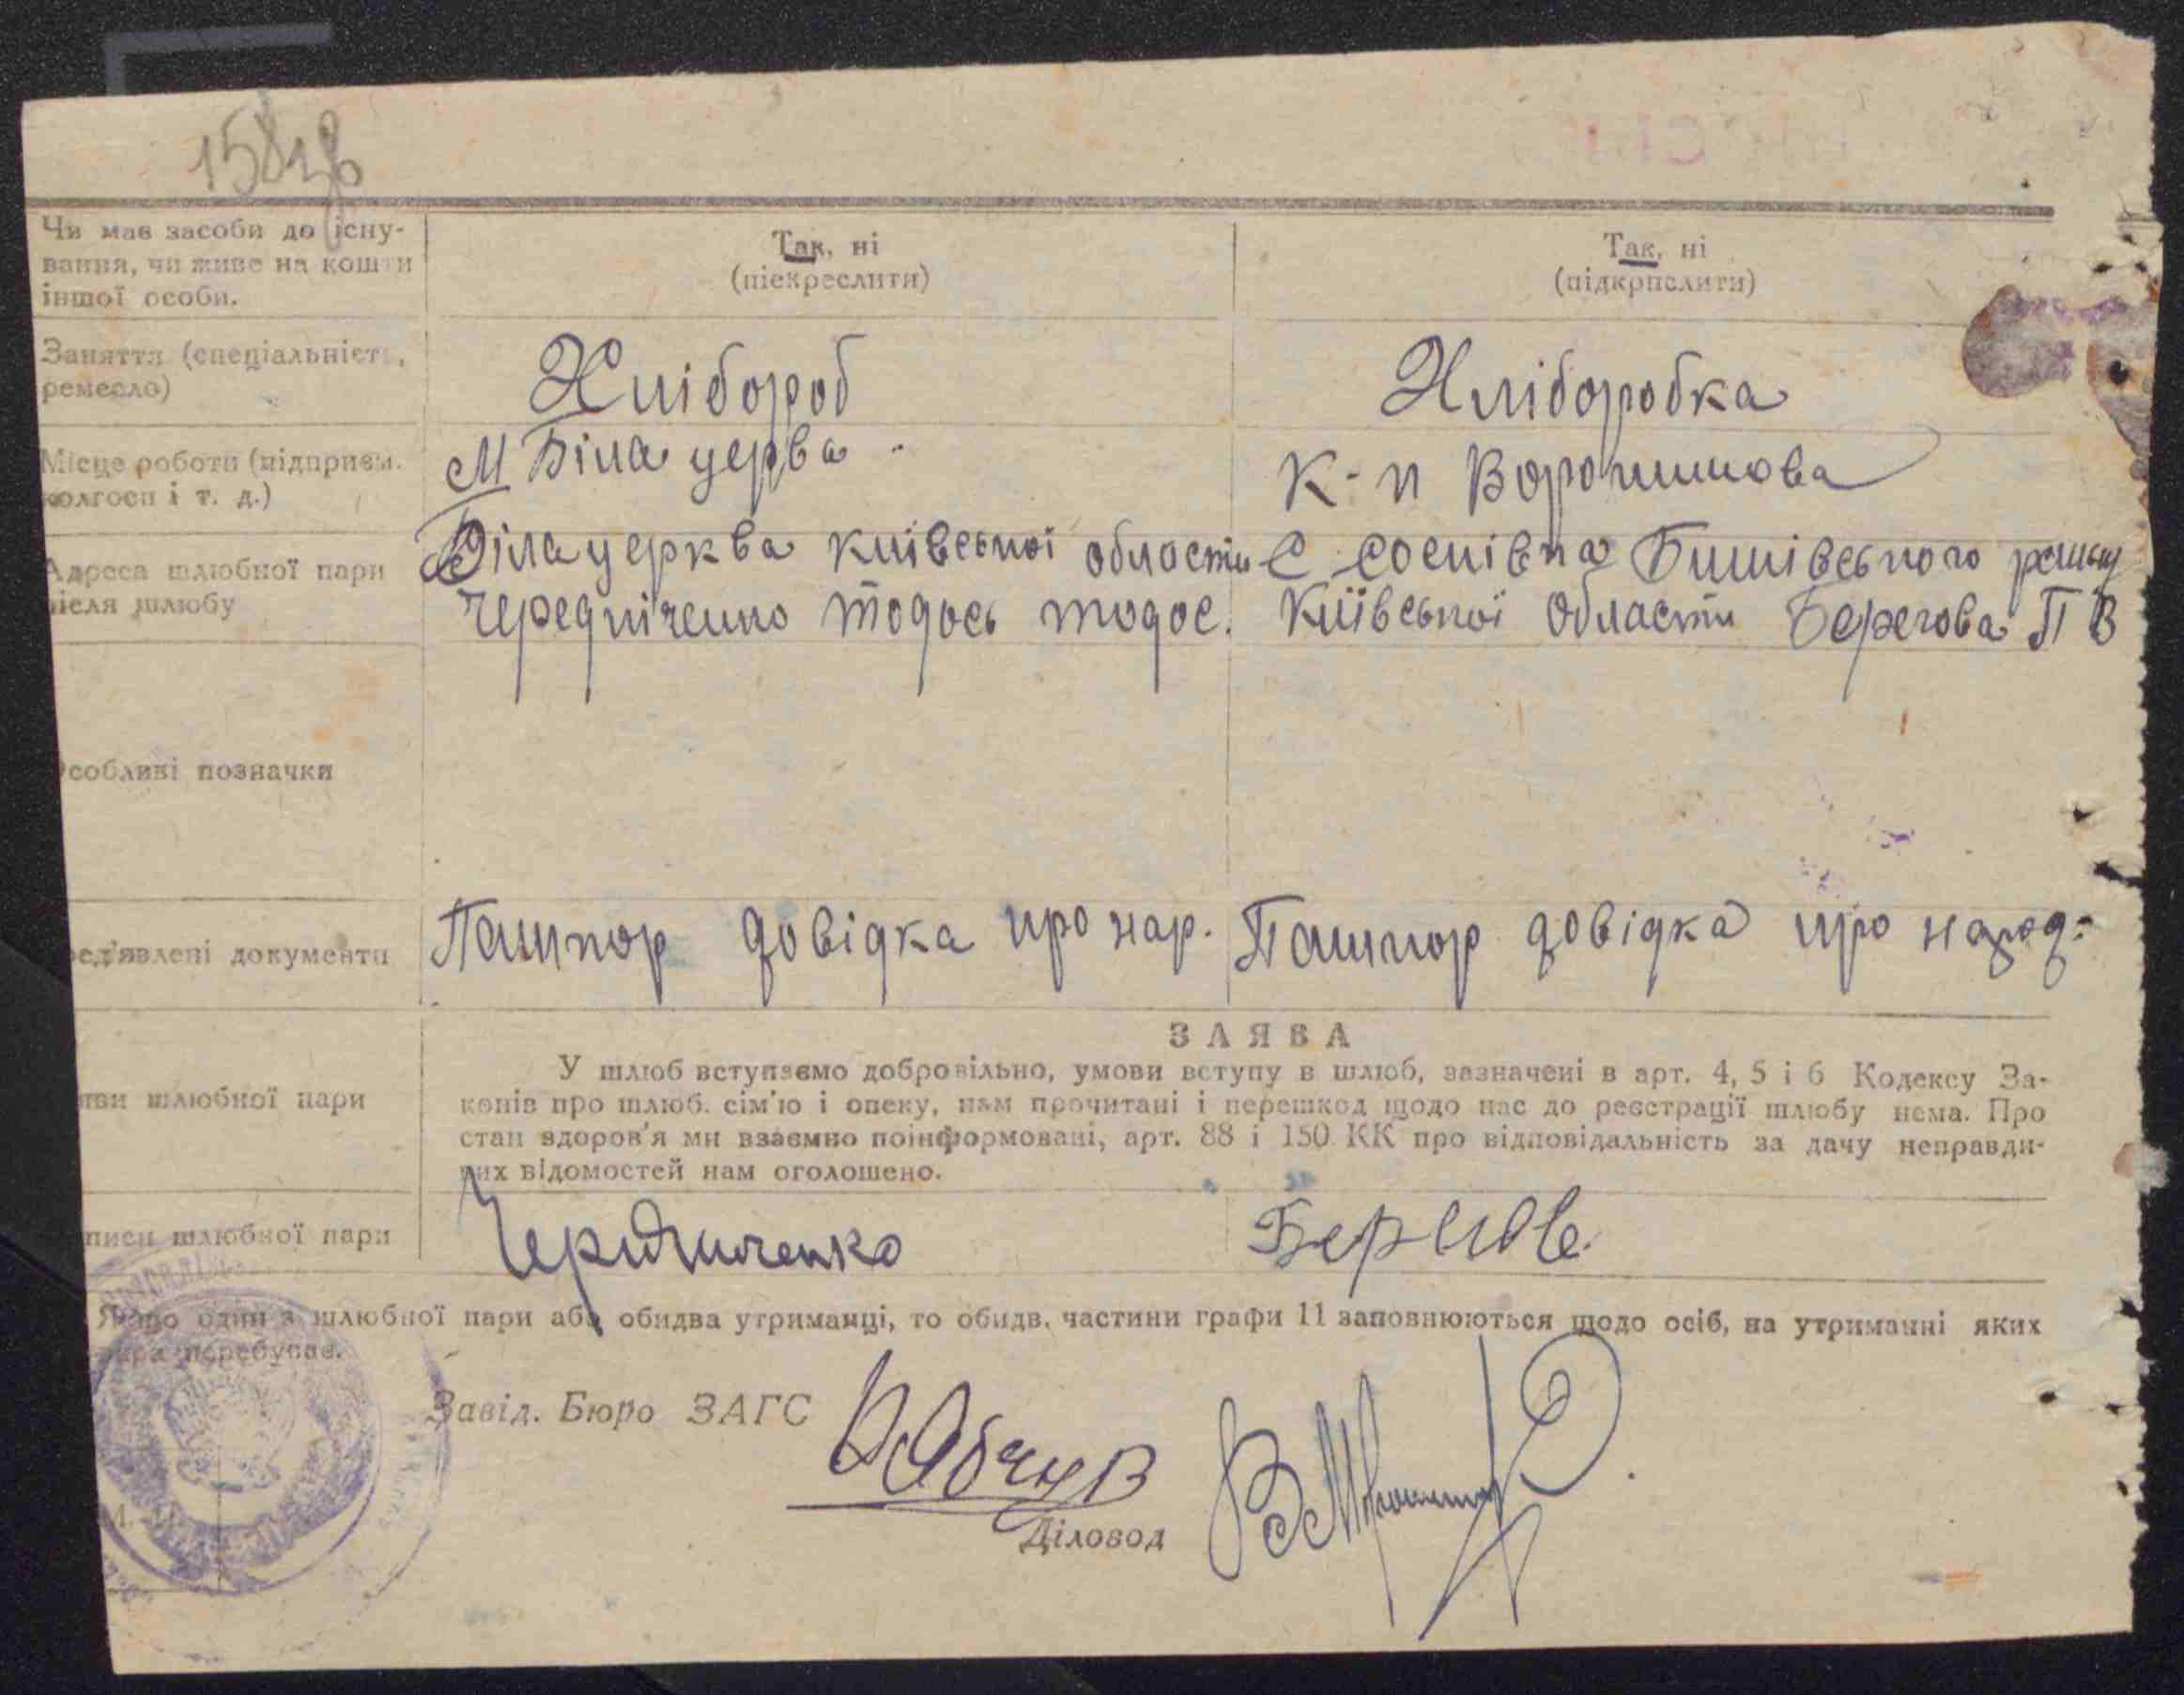 Чи має засоби до існу-
вання, чи живе на кошти
іншої особи.
Так, ні
(піекреслити)
Так, ні
(підкрпслити)
Заняття (спеціальність,
ремесло)
Хлібороб
Хліборобка
Місце роботи (підприєм.
колгосп і т. д.)
М Біла церва
К-п Ворошилова
Адреса шлюбної пари
після шлюбу
Біла церква київської области
Чередніченко Тодось тодос.
С соснівка Бишівського
Київської области Берегова П В
Особливі позначки
ред'явлені документи
Пашпор довідка про нар.
Пашпор довідка про народ.
ЗАЯВА
У шлюб вступаємо добровільно, умови вступу в шлюб, зазначені в арт. 4, 5 і 6 Кодексу За-
конів про шлюб. сім'ю і опеку, нам прочитані і перешкод щодо нас до реєстрації шлюбу нема. Про
стан здоров'я ми взаємно поінформовані, арт. 88 і 150 КК про відповідальність за дачу неправди-
вих відомостей нам оголошено.
яви шлюбної пари
писи шлюбної пари
Чередниченко
Якщо один з шлюбної пари або обидва утриманці, то обидв. частини графи 11 заповнюються щодо осіб, на утриманні яких
пара перебуває.
Завід. Бюро ЗАГС
Діловод